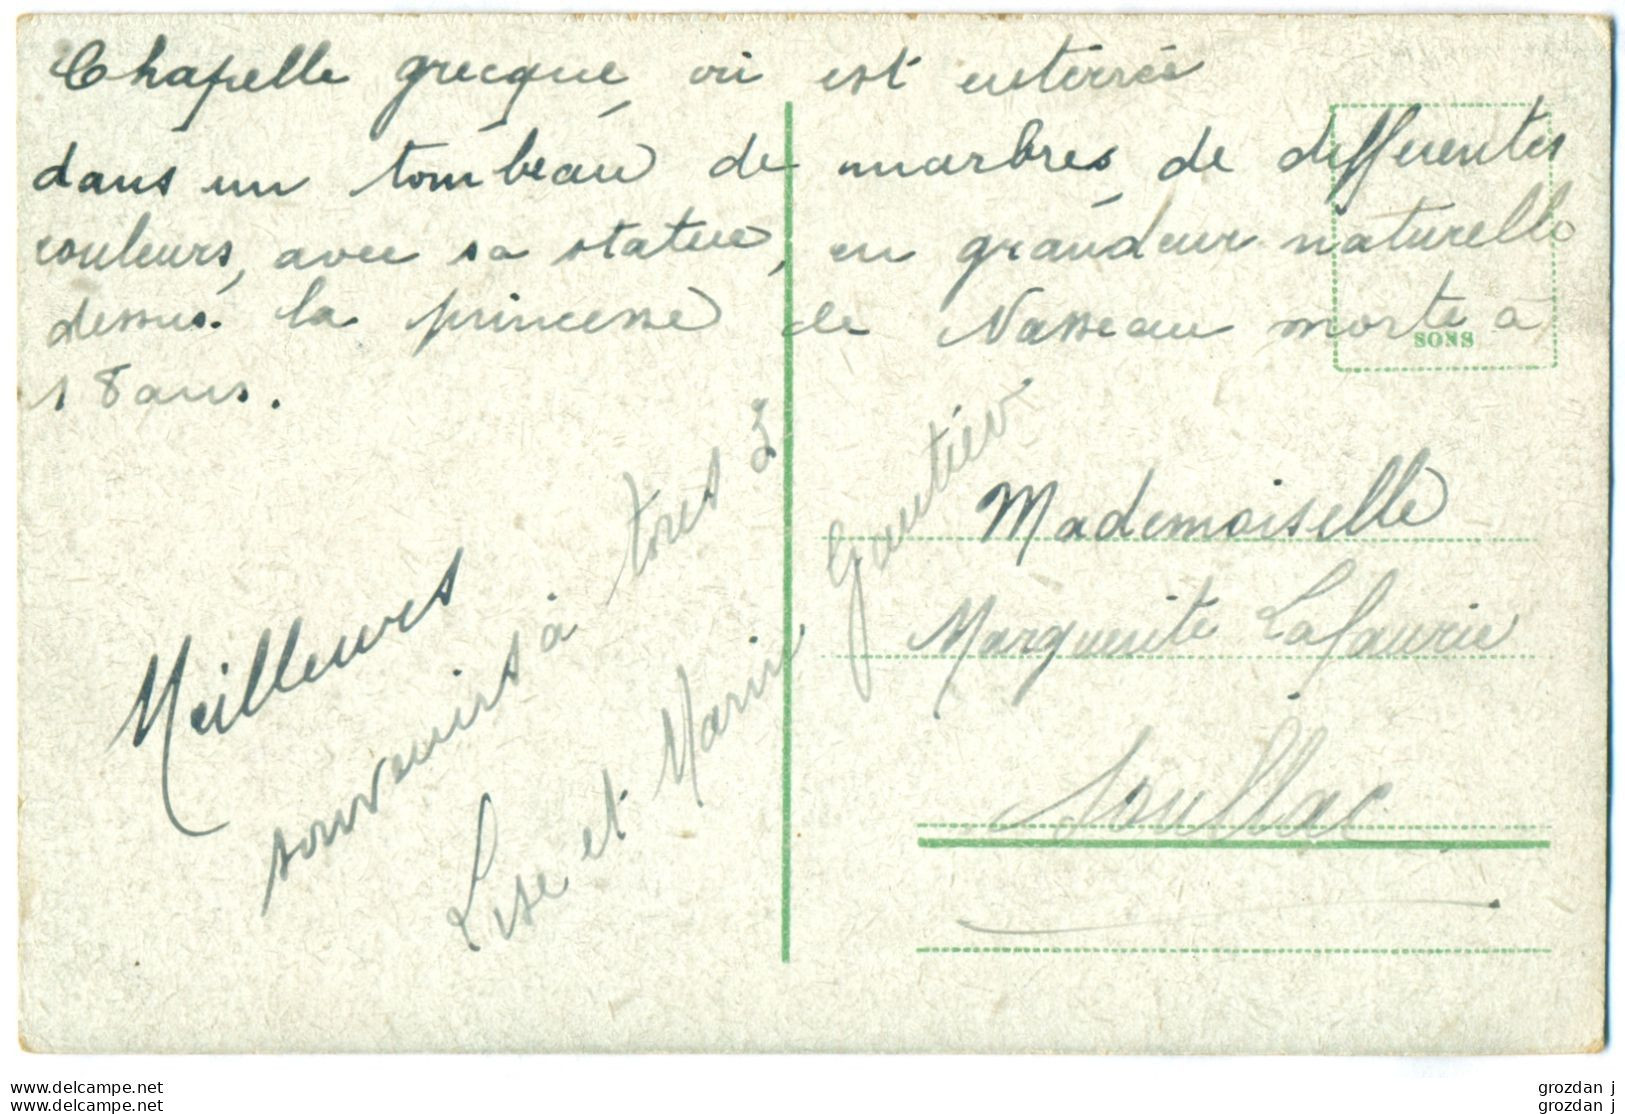 Chapelle grecque où est enterrée
dans un tombeau de marbres de differentes
couleurs, avec sa statue, en grandeur naturelle
dessus. la princesse de Nasseau morte à
18 ans.
Meilleures
souvenirs à tous 3
Lise et Marin Gautier
SONS
Mademoiselle
Marguerite Lafaurie
Souillac
www.delcampe.net
www.delcampe.net
grozdan j
grozdan j